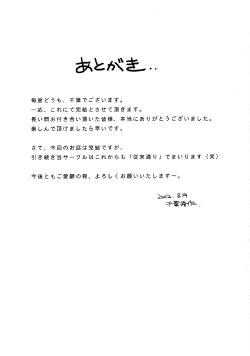 あとがき..
毎度どうも、千葉でございます。
一応、これにて完結とさせて頂きます。
長い間お付き合い頂いた皆様、本当にありがとうございました。
楽しんで頂けましたら幸いです。
さて、今回のお話は完結ですが、
引き続き当サークルはこれからも「従来通り」でまいります（笑）
今後ともご愛顧の程、よろしくお願いいたしますー。
2012. 8月
千葉